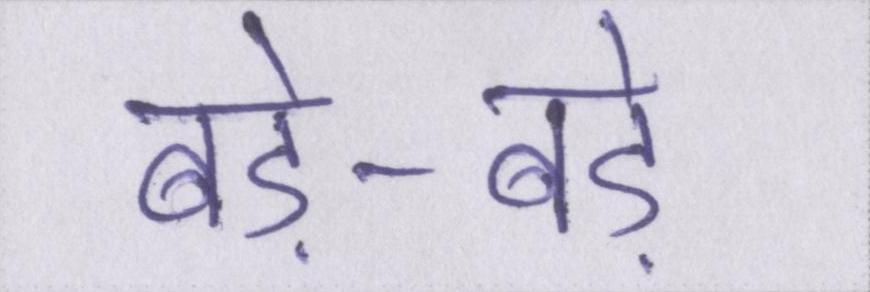 बड़े-बड़े